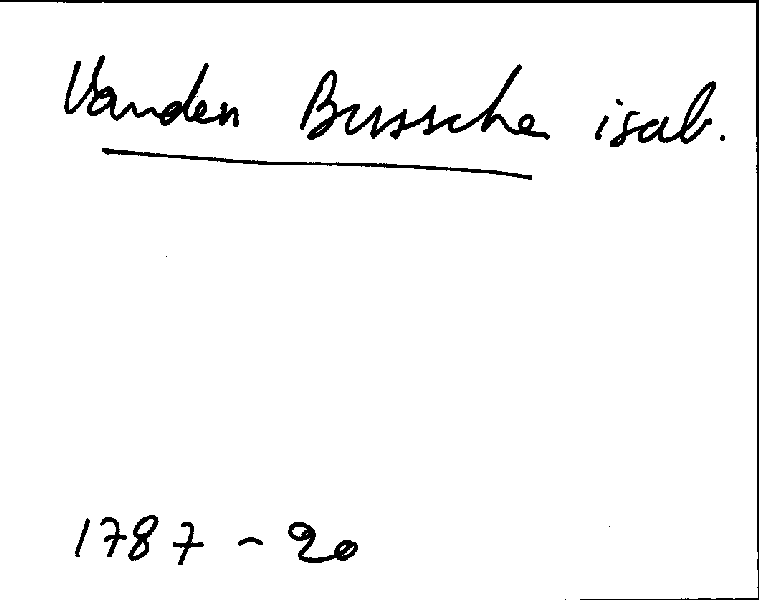 Vanden Bussche isab.
1787 - 20